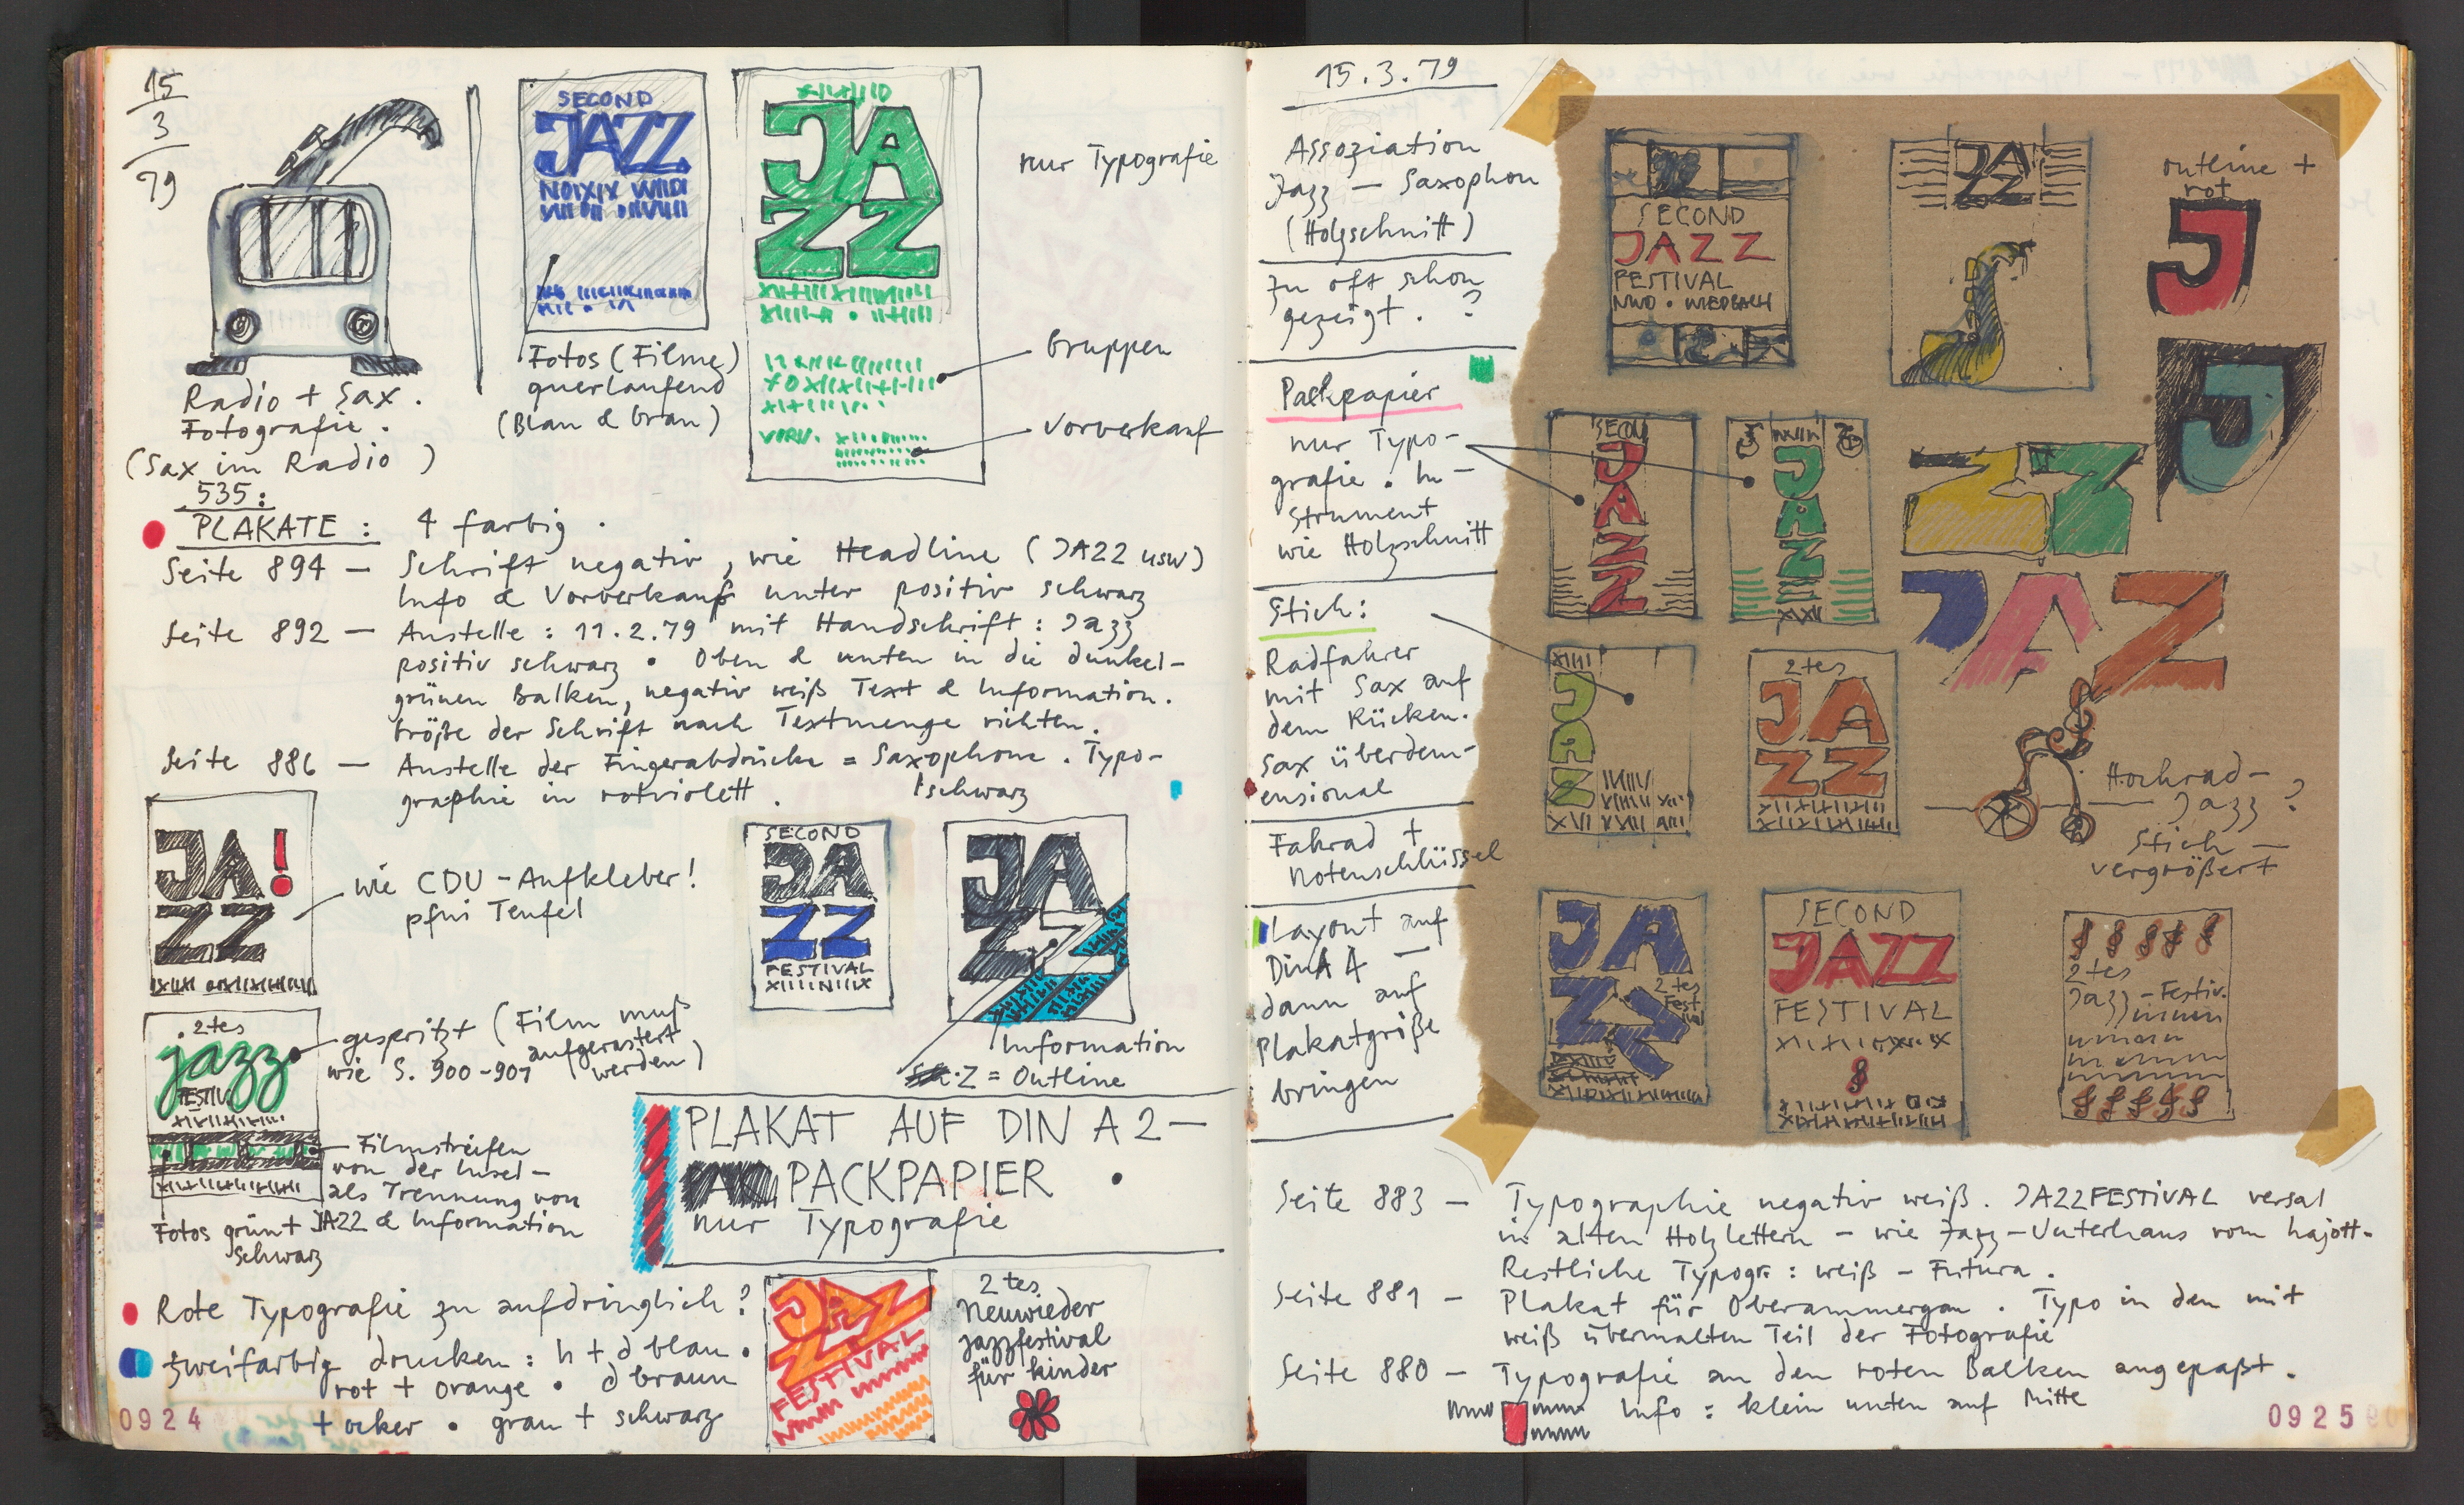 15
3
79
SECOND
JAZZ
JA
ZZ
nur Typografie
Gruppen
VORV.
Vorverkauf
Fotos (Filme)
querlaufend
(Blau & Grau)
Radio + Sax.
Fotografie.
(Sax im Radio)
535:
PLAKATE: 4 farbig.
Seite 894 — Schrift negativ, wie Headline (JAZZ usw)
Info & Vorverkauf unter positiv schwarz
Seite 892 — Anstelle: 11.2.79 mit Handschrift: Jazz
positiv schwarz • Oben & unten in die dunkel-
grünen Balken, negativ weiß Text & Information.
Größe der Schrift nach Textmenge richten.
Seite 886 — Anstelle der Fingerabdrücke = Saxophone. Typo-
graphie in rotviolett.
schwarz
JA!
ZZ
wie CDU-Aufkleber!
pfui Teufel
SECOND
JA
ZZ
FESTIVAL
JA
ZZ
Information
Z = Outline
2tes
jazz
FESTIV.
gespritzt (Film muß
aufgerastert
werden)
wie S. 900-901
Filmstreifen
von der Insel-
als Trennung von
JAZZ & Information
Fotos grün +
schwarz
PLAKAT AUF DIN A 2 —
PACKPAPIER •
nur Typografie
Rote Typografie zu aufdringlich?
zweifarbig drucken: h + d blau •
rot + orange • d braun
+ ocker • grau + schwarz
JAZZ
FESTIVAL
2tes
Neuwieder
jazzfestival
für kinder
0924
15.3.79
Assoziation
Jazz — Saxophon
(Holzschnitt)
Zu oft schon
gezeigt. ?
Packpapier
nur Typo-
grafie. In-
strument
wie Holzschnitt
Stich:
Radfahrer
mit Sax auf
dem Rücken.
Sax überdem-
ensional
Fahrad +
Notenschlüssel
Layout auf
DinA 4 —
dann auf
Plakatgröße
bringen
SECOND
JAZZ
FESTIVAL
JA
ZZ
outline +
rot
J
J
SECON
JAZZ
JAZZ
ZZ
JAZ
JAZZ
2tes
JA
ZZ
Hochrad-
Jazz?
Stich —
vergrößert
JA
ZZ
2tes
Fest
ival
SECOND
JAZZ
FESTIVAL
2tes
Jazz-Festiv.
Seite 883 — Typographie negativ weiß. JAZZFESTIVAL versal
in alten Holzlettern — wie Jazz-Unterhaus vom hajott.
Restliche Typogr.: weiß — Futura.
Seite 881 — Plakat für Oberammergau. Typo in den mit
weiß übermalten Teil der Fotografie
Seite 880 — Typografie an den roten Balken angepaßt.
Info: klein unten auf Mitte
0925